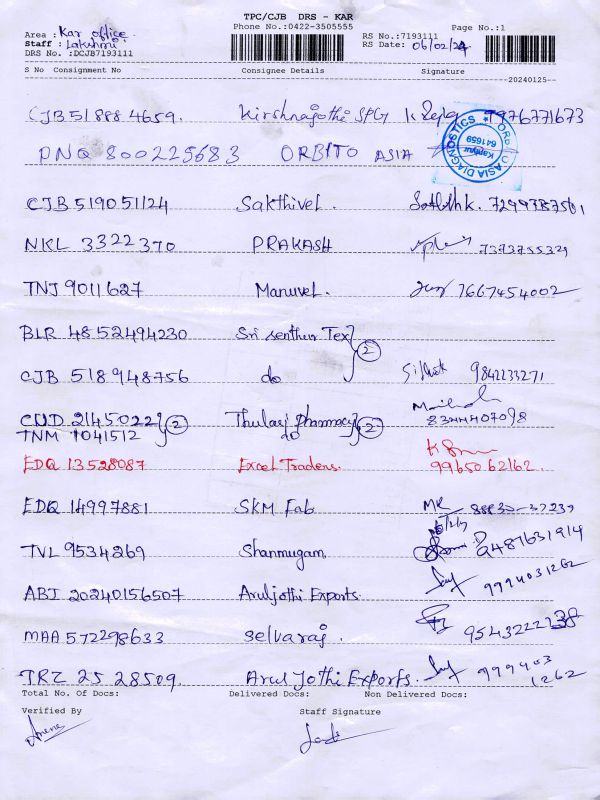 TPC/CJB DRS - KAR
Phone No.:0422-3505555
Page No.:1
Area : Kar office
RS No.:7193111
Staff : Lakshmi
RS Date: 06/02/24
DRS No. :DCJB7193111
S No Consignment No Consignee Details Signature
20240125
CJB 518884659. Kirshnajothi SPG 7976771673
PNQ 800225683 ORBITO ASIA
ORBITO ASIA DIAGNOSTICS Kaniyur 641659
CJB 519051124 Sakthivel. Sathish k. 7299387501
NKL 3322370 PRAKASH 7373755329
TNJ 9011627 Manuvel. 7667454002
BLR 4852494230 Sri senthur Tex
2
CJB 518948756 do 9842233271
CUD 2145022 2 Thulasi pharmacy 2 8344407098
TNM 1041512 do
EDQ 13528087 Excel Traders. 9965062162.
EDQ 14997881 SKM Fab
TVL 9534269 Shanmugam 9487631914
ABI 20240156507 Aruljothi Exports. 9994031262
MAA 572298633 Selvaraj.
TRZ 2528509 Arul Jothi Exports. 999403
1262
Total No. Of Docs: Delivered Docs: Non Delivered Docs:
Verified By Staff Signature